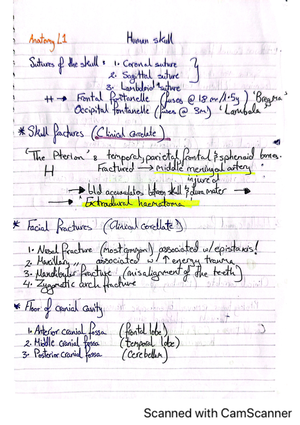 Anatomy L1 Human skull
Sutures of the skull: 1. Coronal suture
2. Sagittal suture
3. Lambdoid suture
Frontal fontanelle (fuses @ 18m/1.5y) 'Bregma'
Occipital fontanelle (fuses @ 3m) 'Lambda'
* Skull fractures (Clinical correlate)
'The Pterion': temporal, parietal, frontal & sphenoid bones.
H Fractured → middle meningeal artery
injury of
→ bld accumulates between skull & dura mater →
→ 'Extradural haematoma'
* Facial fractures (Clinical corellate)
1. Nasal fracture (most common) associated w/ epistaxis!
2. Maxillary " associated w/ ↑ energy trauma
3. Mandibular fracture (misalignment of the teeth)
4. Zygomatic arch fracture
* Floor of cranial cavity
1. Anterior cranial fossa (frontal lobe)
2. Middle cranial fossa (temporal lobe)
3. Posterior cranial fossa (cerebellum)
Scanned with CamScanner